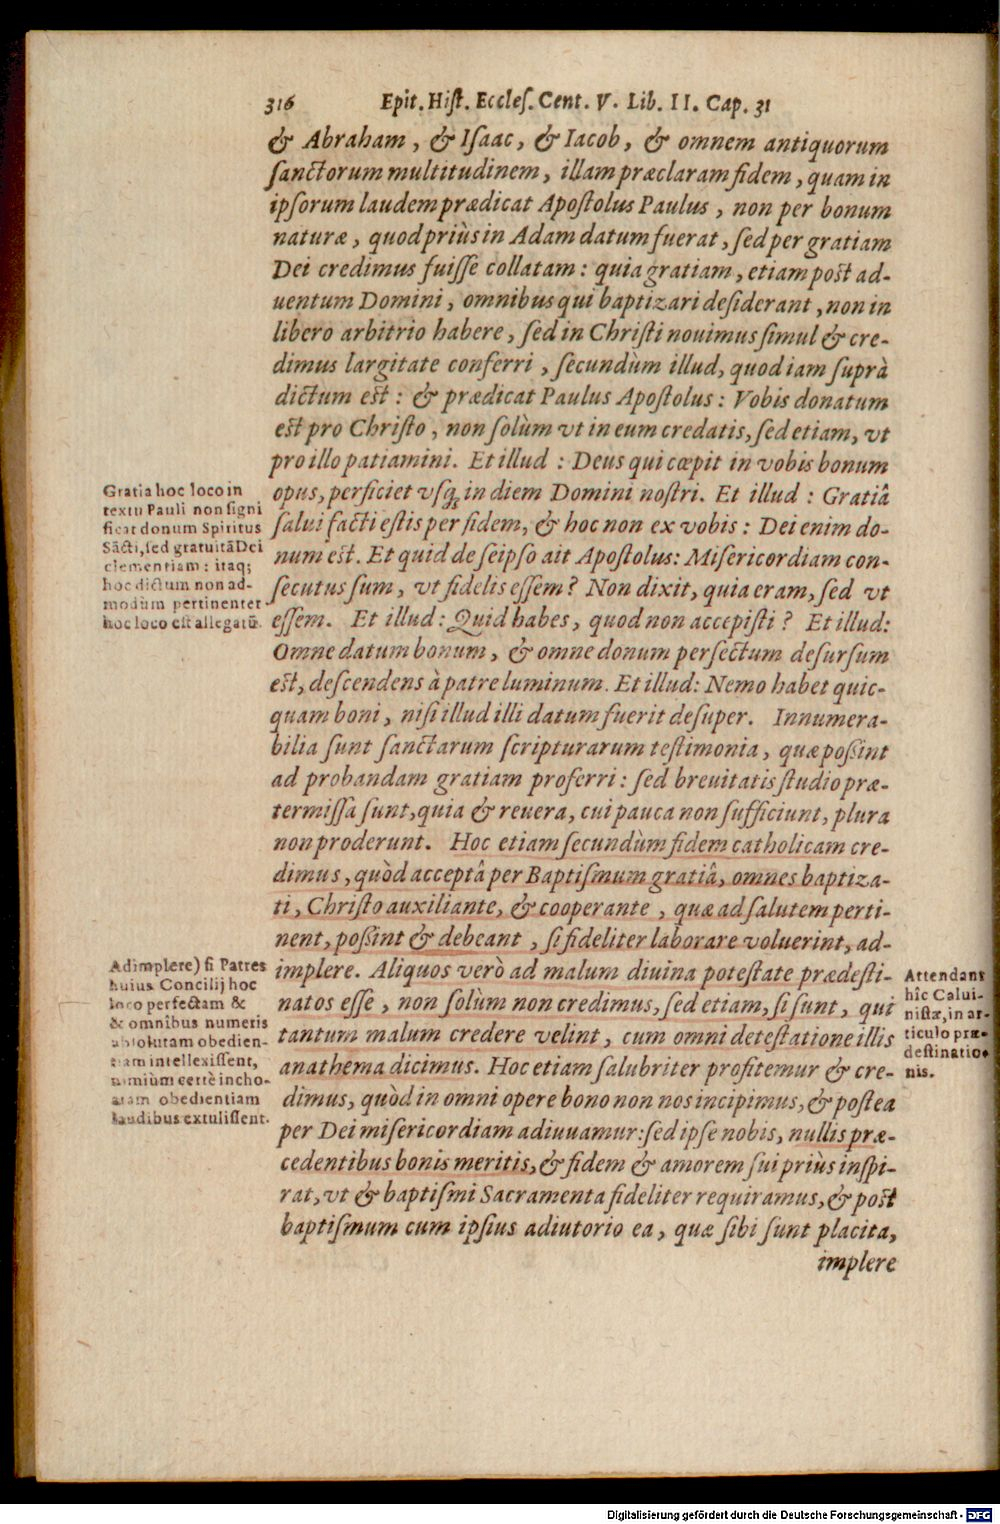 316 Epit. Hiſt. Eccleſ. Cent. V. Lib. II. Cap. 31
& Abraham, & Iſaac, & Iacob, & omnem antiquorum
ſanctorum multitudinem, illam præclaram fidem, quam in
ipſorum laudem prædicat Apoſtolus Paulus, non per bonum
naturæ, quod priùs in Adam datum fuerat, ſed per gratiam
Dei credimus fuiſſe collatam: quia gratiam, etiam poſt ad-
uentum Domini, omnibus qui baptizari deſiderant, non in
libero arbitrio habere, ſed in Chriſti nouimus ſimul & cre-
dimus largitate conferri, ſecundùm illud, quod iam ſuprà
dictum eſt: & prædicat Paulus Apoſtolus: Vobis donatum
eſt pro Chriſto, non ſolùm vt in eum credatis, ſed etiam, vt
pro illo patiamini. Et illud: Deus qui cœpit in vobis bonum
opus, perficiet vſq; in diem Domini noſtri. Et illud: Gratiâ
ſalui facti eſtis per fidem, & hoc non ex vobis: Dei enim do-
num eſt. Et quid de ſeipſo ait Apoſtolus: Miſericordiam con-
ſecutus ſum, vt fidelis eſſem? Non dixit, quia eram, ſed vt
eſſem. Et illud: Quid habes, quod non accepiſti? Et illud:
Omne datum bonum, & omne donum perfectum deſurſum
eſt, deſcendens à patre luminum. Et illud: Nemo habet quic-
quam boni, niſi illud illi datum fuerit deſuper. Innumera-
bilia ſunt ſanctarum ſcripturarum teſtimonia, quæ poßint
ad probandam gratiam proferri: ſed breuitatis ſtudio præ-
termiſſa ſunt, quia & reuera, cui pauca non ſufficiunt, plura
non proderunt. Hoc etiam ſecundùm fidem catholicam cre-
dimus, quòd acceptâ per Baptiſmum gratiâ, omnes baptiza-
ti, Chriſto auxiliante, & cooperante, quæ ad ſalutem perti-
nent, poßint & debeant, ſi fideliter laborare voluerint, ad-
implere. Aliquos verò ad malum diuina poteſtate prædeſti-
natos eſſe, non ſolùm non credimus, ſed etiam, ſi ſunt, qui
tantum malum credere velint, cum omni deteſtatione illis
anathema dicimus. Hoc etiam ſalubriter profitemur & cre-
dimus, quòd in omni opere bono non nos incipimus, & poſtea
per Dei miſericordiam adiuuamur: ſed ipſe nobis, nullis præ-
cedentibus bonis meritis, & fidem & amorem ſui priùs inſpi-
rat, vt & baptiſmi Sacramenta fideliter requiramus, & poſt
baptiſmum cum ipſius adiutorio ea, quæ ſibi ſunt placita,
implere
Gratia hoc loco in
textu Pauli non ſigni
ficat donum Spiritus
Sācti, ſed gratuitā Dei
clementiam: itaq;
hoc dictum non ad-
modùm pertinenter
hoc loco eſt allegatū.
Adimplere) ſi Patres
huius Concilij hoc
loco perfectam &
& omnibus numeris
abſolutam obedien-
tiam intellexiſſent,
nimiùm certè incho-
atam obedientiam
laudibus extuliſſent.
Attendant
hîc Calui-
niſtæ, in ar-
ticulo præ-
deſtinatio-
nis.
Digitalisierung gefördert durch die Deutsche Forschungsgemeinschaft - DFG